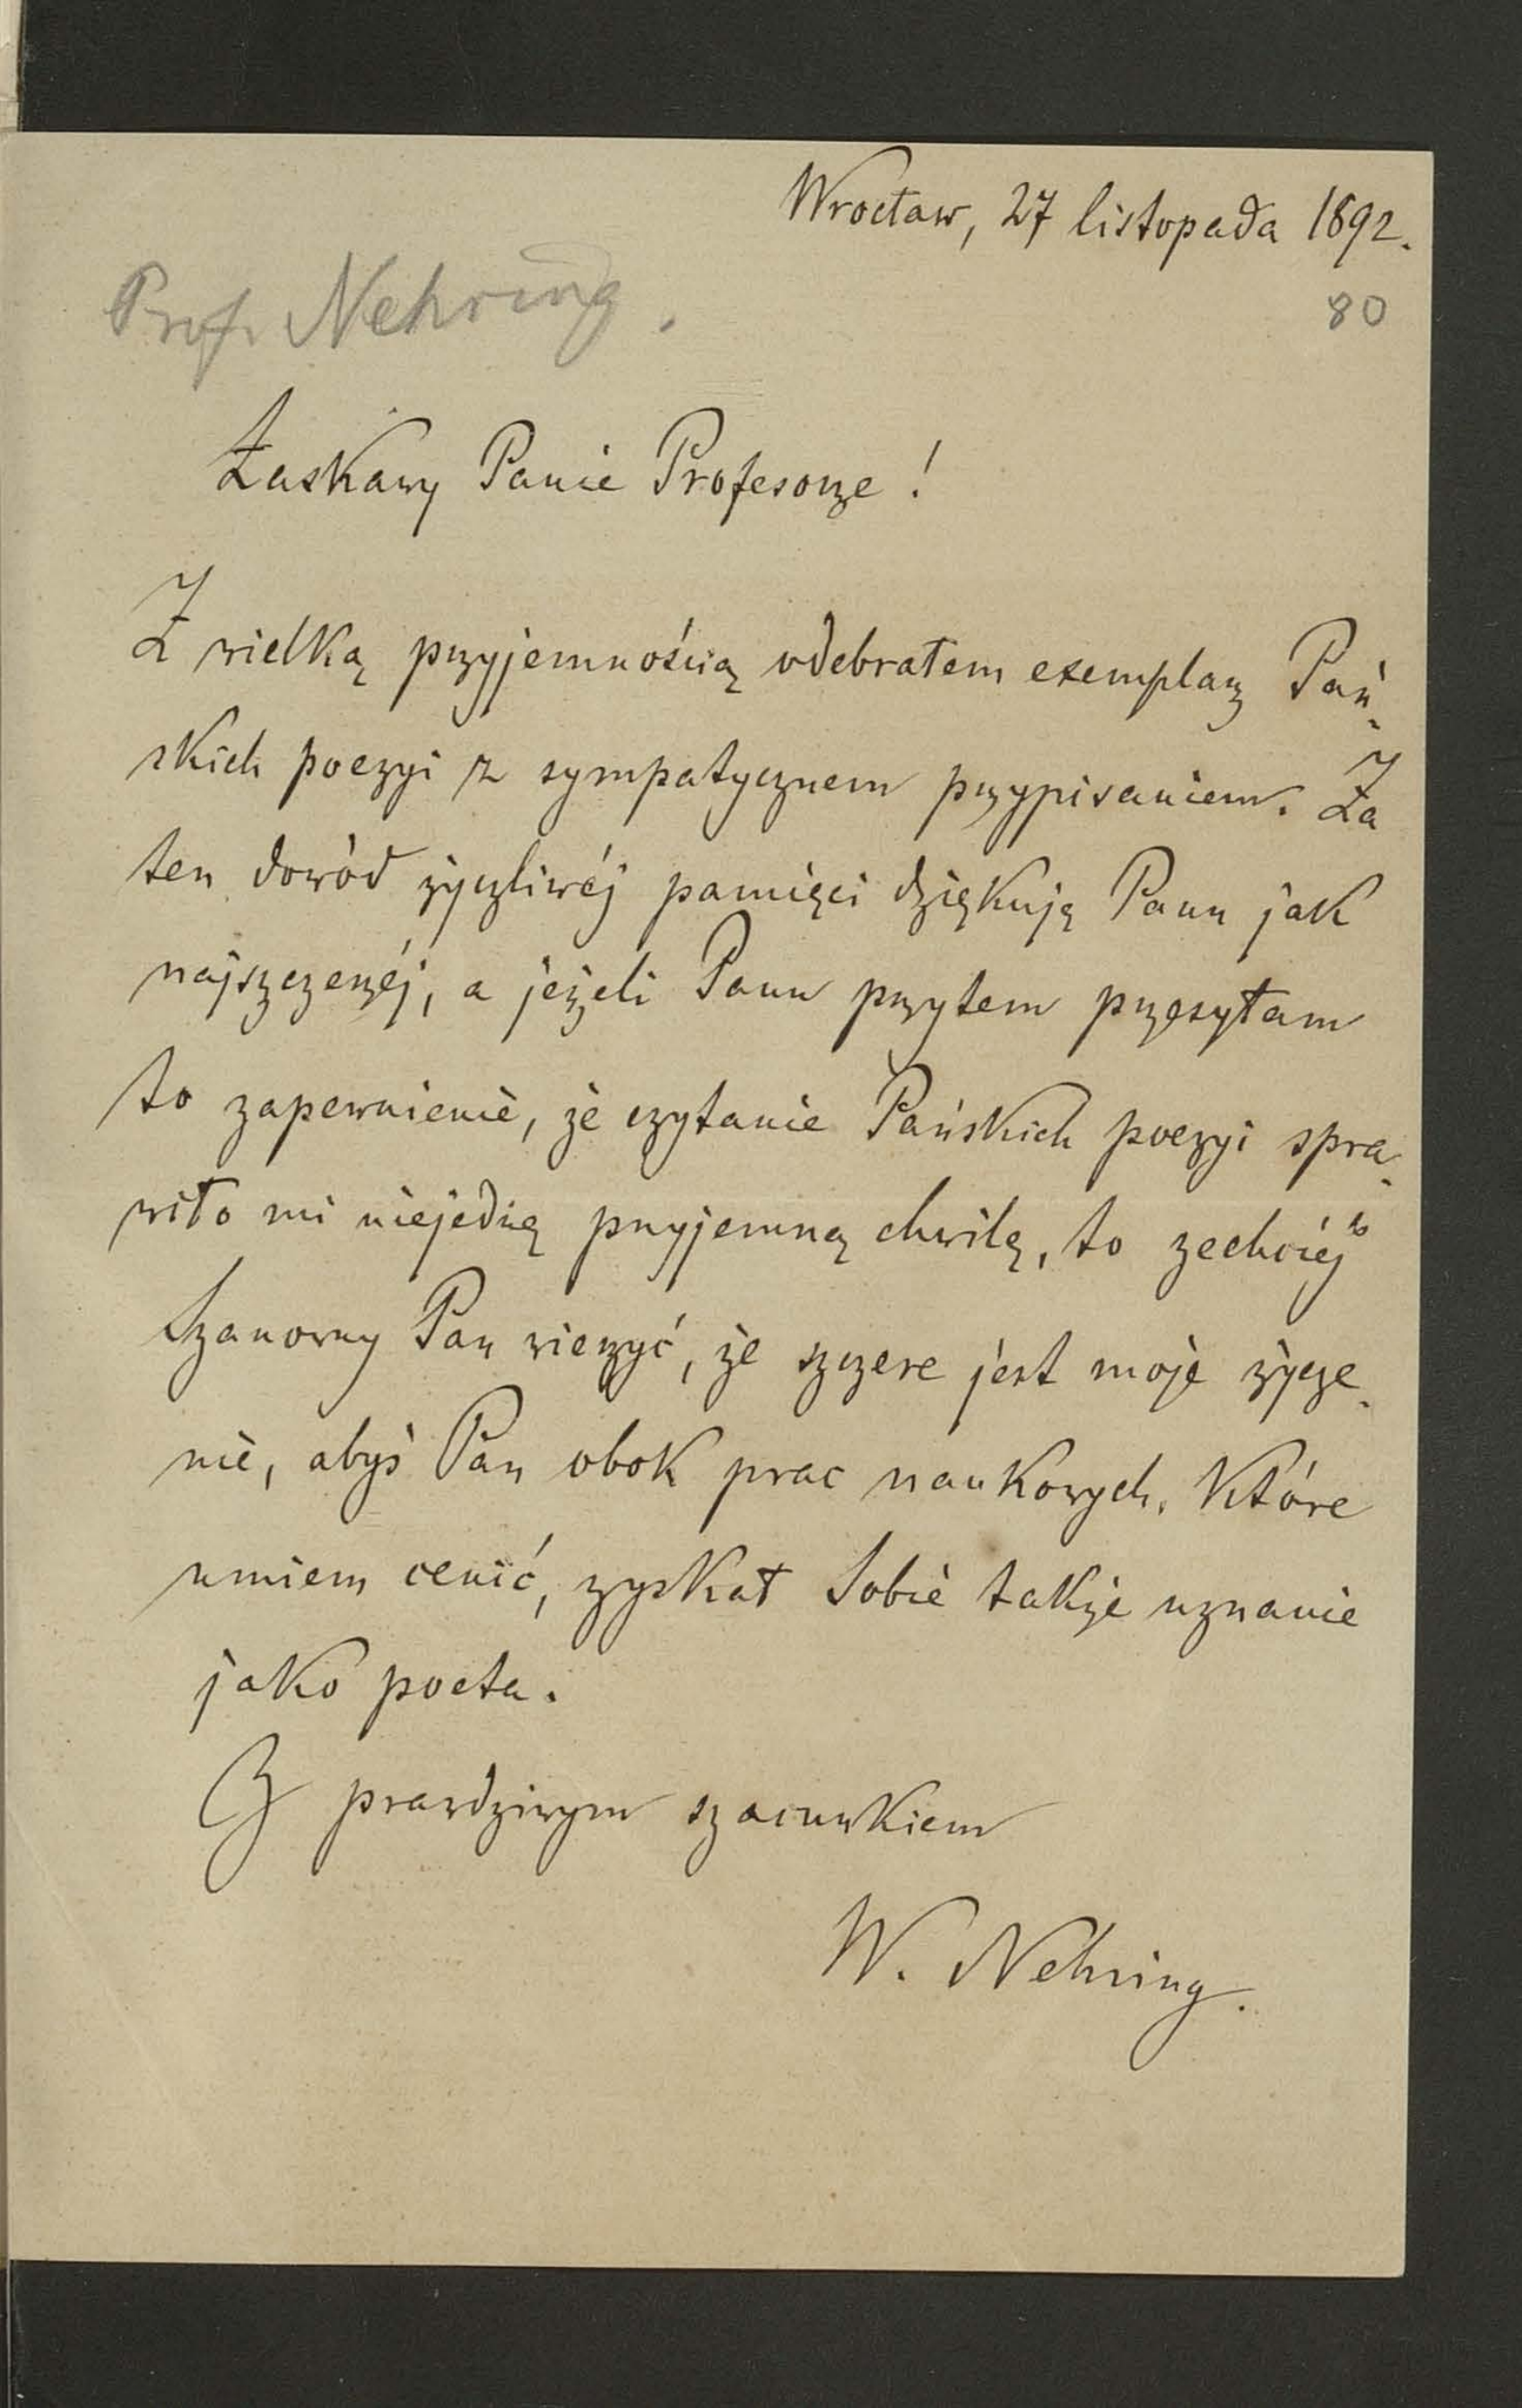 Wrocław, 27 listopada 1892.
80
Prof. Nehring.
Łaskawy Panie Profesorze!
Z wielką przyjemnością odebrałem exemplarz Pań-
skich poezyi z sympatycznem przypisaniem. Za
ten dowód życzliwéj pamięci dziękuję Panu jak
najszczerzéj, a jeżeli Panu przytem przesyłam
to zapewnienie, że czytanie Pańskich poezyi spra-
wiło mi niejedną przyjemną chwilę, to zechciéj
Szanowny Pan wierzyć, że szczere jest moje życze-
nie, abyś Pan obok prac naukowych, które
umiem cenić, zyskał Sobie także uznanie
jako poeta.
Z prawdziwym szacunkiem
W. Nehring.